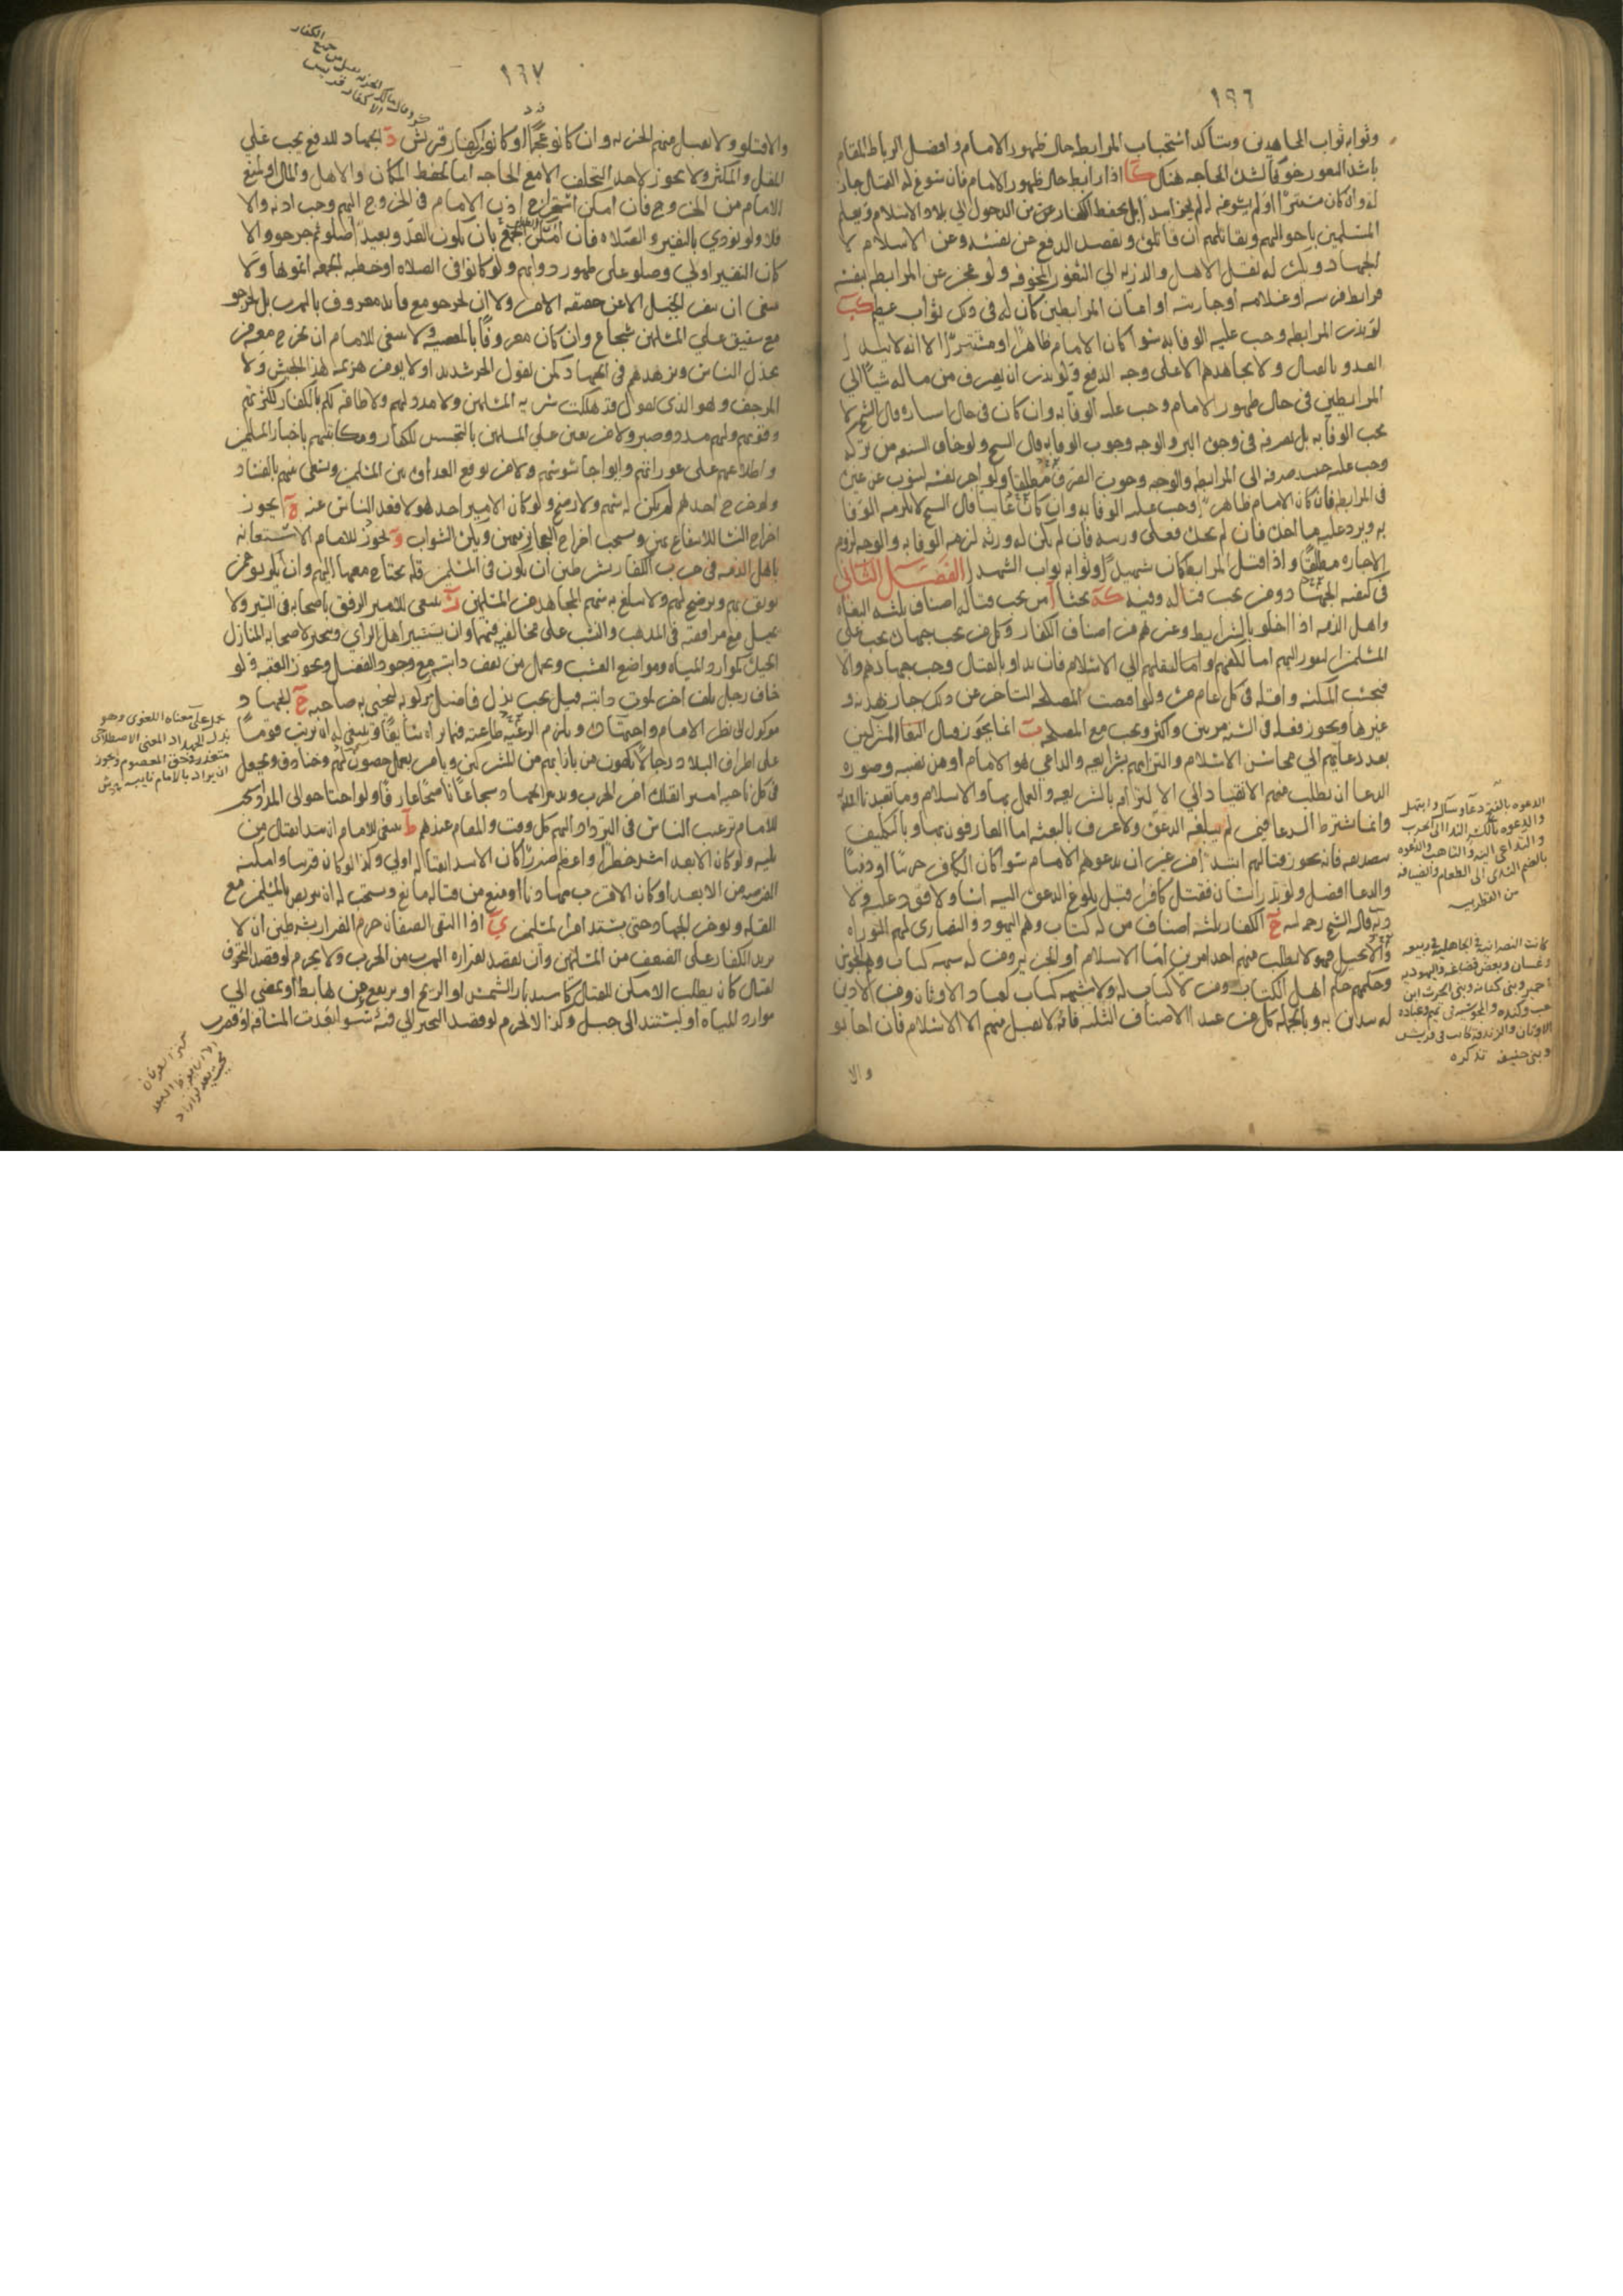 ١٩٦
وثوابه ثواب المجاهدين ويتأكد استحباب المرابطه حال ظهور الامام وافضل الرباط المقام
باشد الثغور خوفا لشده الحاجه هناك كا اذا رابط حال ظهور الامام فان سوغ له القتال جاز
له وان كان مستترا او لم يسوغ له لم يجز ابتدا بل يحفظ الكفار من الدخول الى بلاد الاسلام ويعلم
المسلمين باحوالهم ويقاتلهم ان قاتلوه ويقصد الدفع عن نفسه وعن الاسلام لا
الجهاد ويكره له نقل الاهل والذريه الى الثغور المخوفه ولو عجز عن المرابطه بنفسه
فرابط فرسه او غلامه او جاريته او اعان المرابطين كان له فى ذلك ثواب عظيم كب
لو نذر المرابطه وجب عليه الوفا به سوا كان الامام ظاهرا او مستترا الا انه لا يبدا
العدو بالقتال ولا يجاهدهم الا على وجه الدفع ولو نذر ان يصرف من ماله شيا الى
المرابطين فى حال ظهور الامام وجب عليه الوفا به وان كان فى حال استتاره قال الشيخ لا
يجب الوفا به بل يصرفه فى وجوه البر والوجه وجوب الوفا به قال الشيخ ولو خاف الشنعه من تركه
وجب عليه صرفه الى المرابطه والوجه وجوب الصرف مطلقا ولو اجر نفسه لينوب عن غيره
فى المرابطه فان كان الامام ظاهرا وجب عليه الوفا به وان كان غايبا قال الشيخ لا يلزمه الوفا
به ويرد عليه ما اخذه فان لم يجده فعلى ورثته فان لم يكن له ورثه لزمه الوفا به والوجه لزوم
الاجاره مطلقا واذا قتل المرابط كان شهيدا وثوابه ثواب الشهدا الفصل الثانى
فى كيفيه الجهاد ومن يجب قتاله وفيه كه بحثا ا من يجب قتاله اصناف ثلثه البغاه
واهل الذمه اذا اخلوا بالشرايط وغيرهم من اصناف الكفار وكل من يجب جهاده يجب على
المسلمين النفور اليهم اما لكفهم واما لنقلهم الى الاسلام فان بداوا بالقتال وجب جهادهم والا
فبحسب المكنه واقله فى كل عام مره ولو اقتضت المصلحه التاخر عن ذلك جاز بهدنه و
غيرها ويجوز فعله فى السنه مرتين واكثر ويجب مع المصلحه ب انما يجوز قتال
بعد دعايهم الى محاسن الاسلام والتزامهم بشرايعه والداعى هو الامام او من نصبه وصوره
الدعا ان يطلب منهم الانقياد الى الالتزام بالشريعه والعمل بها والاسلام
وانما يشترط الدعا فيمن لم يبلغه الدعوه ولا عرف بالبعثه اما العارفون بها وبالتكليف
بتصديقه فانه يجوز قتالهم ابتدا من غير ان يدعوهم الامام سوا كان الكافر حربيا او ذميا
والدعا افضل ولو بدر انسان فقتل كافرا قبل بلوغ الدعوه اليه اسا ولا قود عليه ولا
ديه قاله الشيخ رحمه الله ج الكفار ثلثه اصناف من له كتاب وهم اليهود والنصارى لهم التوراه
والانجيل فهولا يطلب منهم احد امرين اما الاسلام او الجزيه ومن له شبهه كتاب وهم المجوس
وحكمهم حكم اهل الكتاب ومن لا كتاب له ولا شبهه كتاب كعباد الاوثان ومن لا دين
له يتدين به وبالجمله كل من عدا الاصناف الثلثه فانه لا يقبل منهم الا الاسلام فان اجابو
والا
الدعوه بالفتح
والدعوه بالكسر
بالضم الى الطعام والضيافه
كانت النصرانيه فى الجاهليه فى ربيعه
وغسان وبعض قضاعه واليهوديه
حمير وبنى كنانه وبنى الحرث ابن
كعب وكنده والمجوسيه فى تميم وعباده
الاوثان والزندقه كانت فى قريش
وبنى حنيفه تذكره
١٩٧
والا قتلو ولا يقبل منهم الجزيه وان كانو عجما او كانو كفار قريش د الجهاد للدفع يجب على
المقل والمكثر ولا يجوز لاحد التخلف الا مع الحاجه اما لحفظ المكان والاهل والمال او لمنع
الامام من الخروج فان امكن استخراج اذن الامام فى الخروج اليهم وجب اذنه والا
فلا ولو نودى بالنفير والصلاه فان امكن الجمع بان يكون العدو بعيدا صلو ثم خرجو والا
كان النفير اولى وصلو على ظهور دوابهم ولو كانو فى الصلاه او خطبه الجمعه اتموها ولا
ينبغى ان ينفر الخيل الا عن حقيقه الامر ولا ان يخرجو مع قايد معروف بالهرب بل يخرجو
مع شفيق على المسلمين شجاع وان كان معروفا بالمعصيه ولا ينبغى للامام ان يخرج معه من
يخذل الناس ويزهدهم فى الجهاد كمن يقول الحر شديد او لا يومن هزيمه هذا الجيش ولا
المرجف وهو الذى يقول قد هلكت سريه المسلمين ولا مدد لهم ولا طاقه لكم بالكفار لكثرتهم
وقوتهم ولهم مدد وصبر ولا من يعين على المسلمين بالتجسس للكفار ومكاتبتهم باخبار المسلمين
واطلاعهم على عوراتهم وايوا جاسوسهم ولا من يوقع العداوه بين المسلمين ويسعى بينهم بالفساد
ولو خرج احدهم لم يكن له سهم ولا رضخ ولو كان الامير احد هولا قعد الناس عنه ه يجوز
اخراج النسا للانتفاع بهن ويستحب اخراج العجايز منهن ويكره الشواب و يجوز للامام الاستعانه
باهل الذمه فى حرب الكفار بشرطين ان يكون فى المسلمين قله يحتاج معها اليهم وان يكونو ممن
يوثق بهم ويرضخ لهم ولا يبلغ به سهم المجاهد من المسلمين ز ينبغى للامير الرفق باصحابه فى السير ولا
يميل مع موافقه فى المذهب والنسب على مخالفه فيهما وان يستشير اهل الراى ويتخير لاصحابه المنازل
الجيده كموارد المياه ومواضع العشب ويحمل من نفقت دابته مع وجود الفضل ويجوز العقبه ولو
خاف رجل تلف اخر لموت دابته قيل يجب بذل فاضل مركوبه ليحيى به صاحبه ح الجهاد
موكول الى نظر الامام واجتهاده ويلزم الرعيه طاعته فيما يراه سايغا وينبغى له ان يرتب قوما
على اطراف البلاد رجالا يكفون من بازايهم من المشركين ويامر بعمل حصون لهم وخنادق ويجعل
فى كل ناحيه اميرا يقلده امر الحرب وتدبير الجهاد شجاعا ناصحا عارفا ولو احتاجو الى المدد
للامام ترغيب الناس فى الترداد اليهم كل وقت والمقام عندهم ط ينبغى للامام ان يبدا بقتال من
يليه ولو كان الابعد اشد خطرا واعظم ضررا كان الابتدا بقتاله اولى وكذا لو كان قريبا وامكنه
الفرصه من الابعد او كان الاقرب مهادنا او منع من قتاله مانع ويستحب له ان يتربص بالمسلمين مع
القله ويوخر الجهاد حتى يشتد امر المسلمين ى اذا التقى الصفان حرم الفرار بشرطين ان لا
يزيد الكفار على الضعف من المسلمين وان لا يقصد بفراره الهرب من الحرب ولا يحرم لو قصد التحرف
لقتال كان يطلب الامكن للقتال كاستدبار الشمس او الريح او يرتفع عن هابط او يمضى الى
موارد المياه او ليستند الى جبل وكذا لا يحرم لو قصد التحيز الى فئه سوا بعدت المسافه او قصرت
على معناه اللغوى وهو
المعنى الاصطلاحى
متعذر فى حق المعصوم ويجوز
ان يراد بالامام نايبه